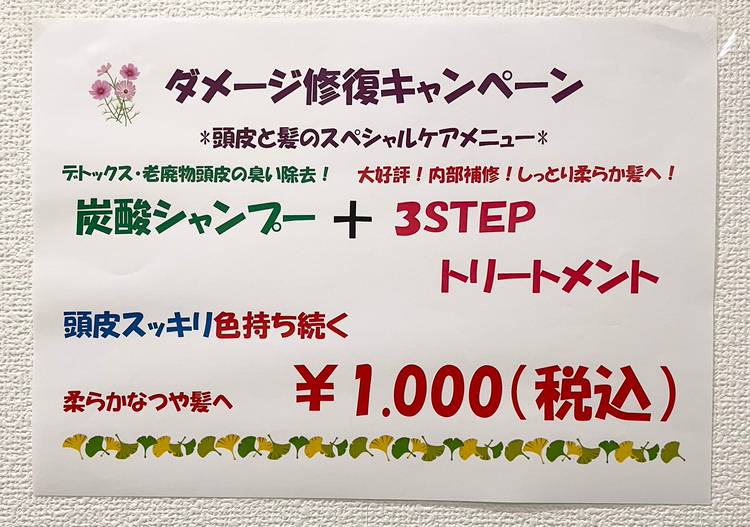 ダメージ修復キャンペーン
*頭皮と髪のスペシャルケアメニュー*
デトックス・老廃物頭皮の臭い除去! 大好評!内部補修!しっとり柔らか髪へ!
炭酸シャンプー + 3STEP
トリートメント
頭皮スッキリ色持ち続く
柔らかなつや髪へ ¥1.000(税込)